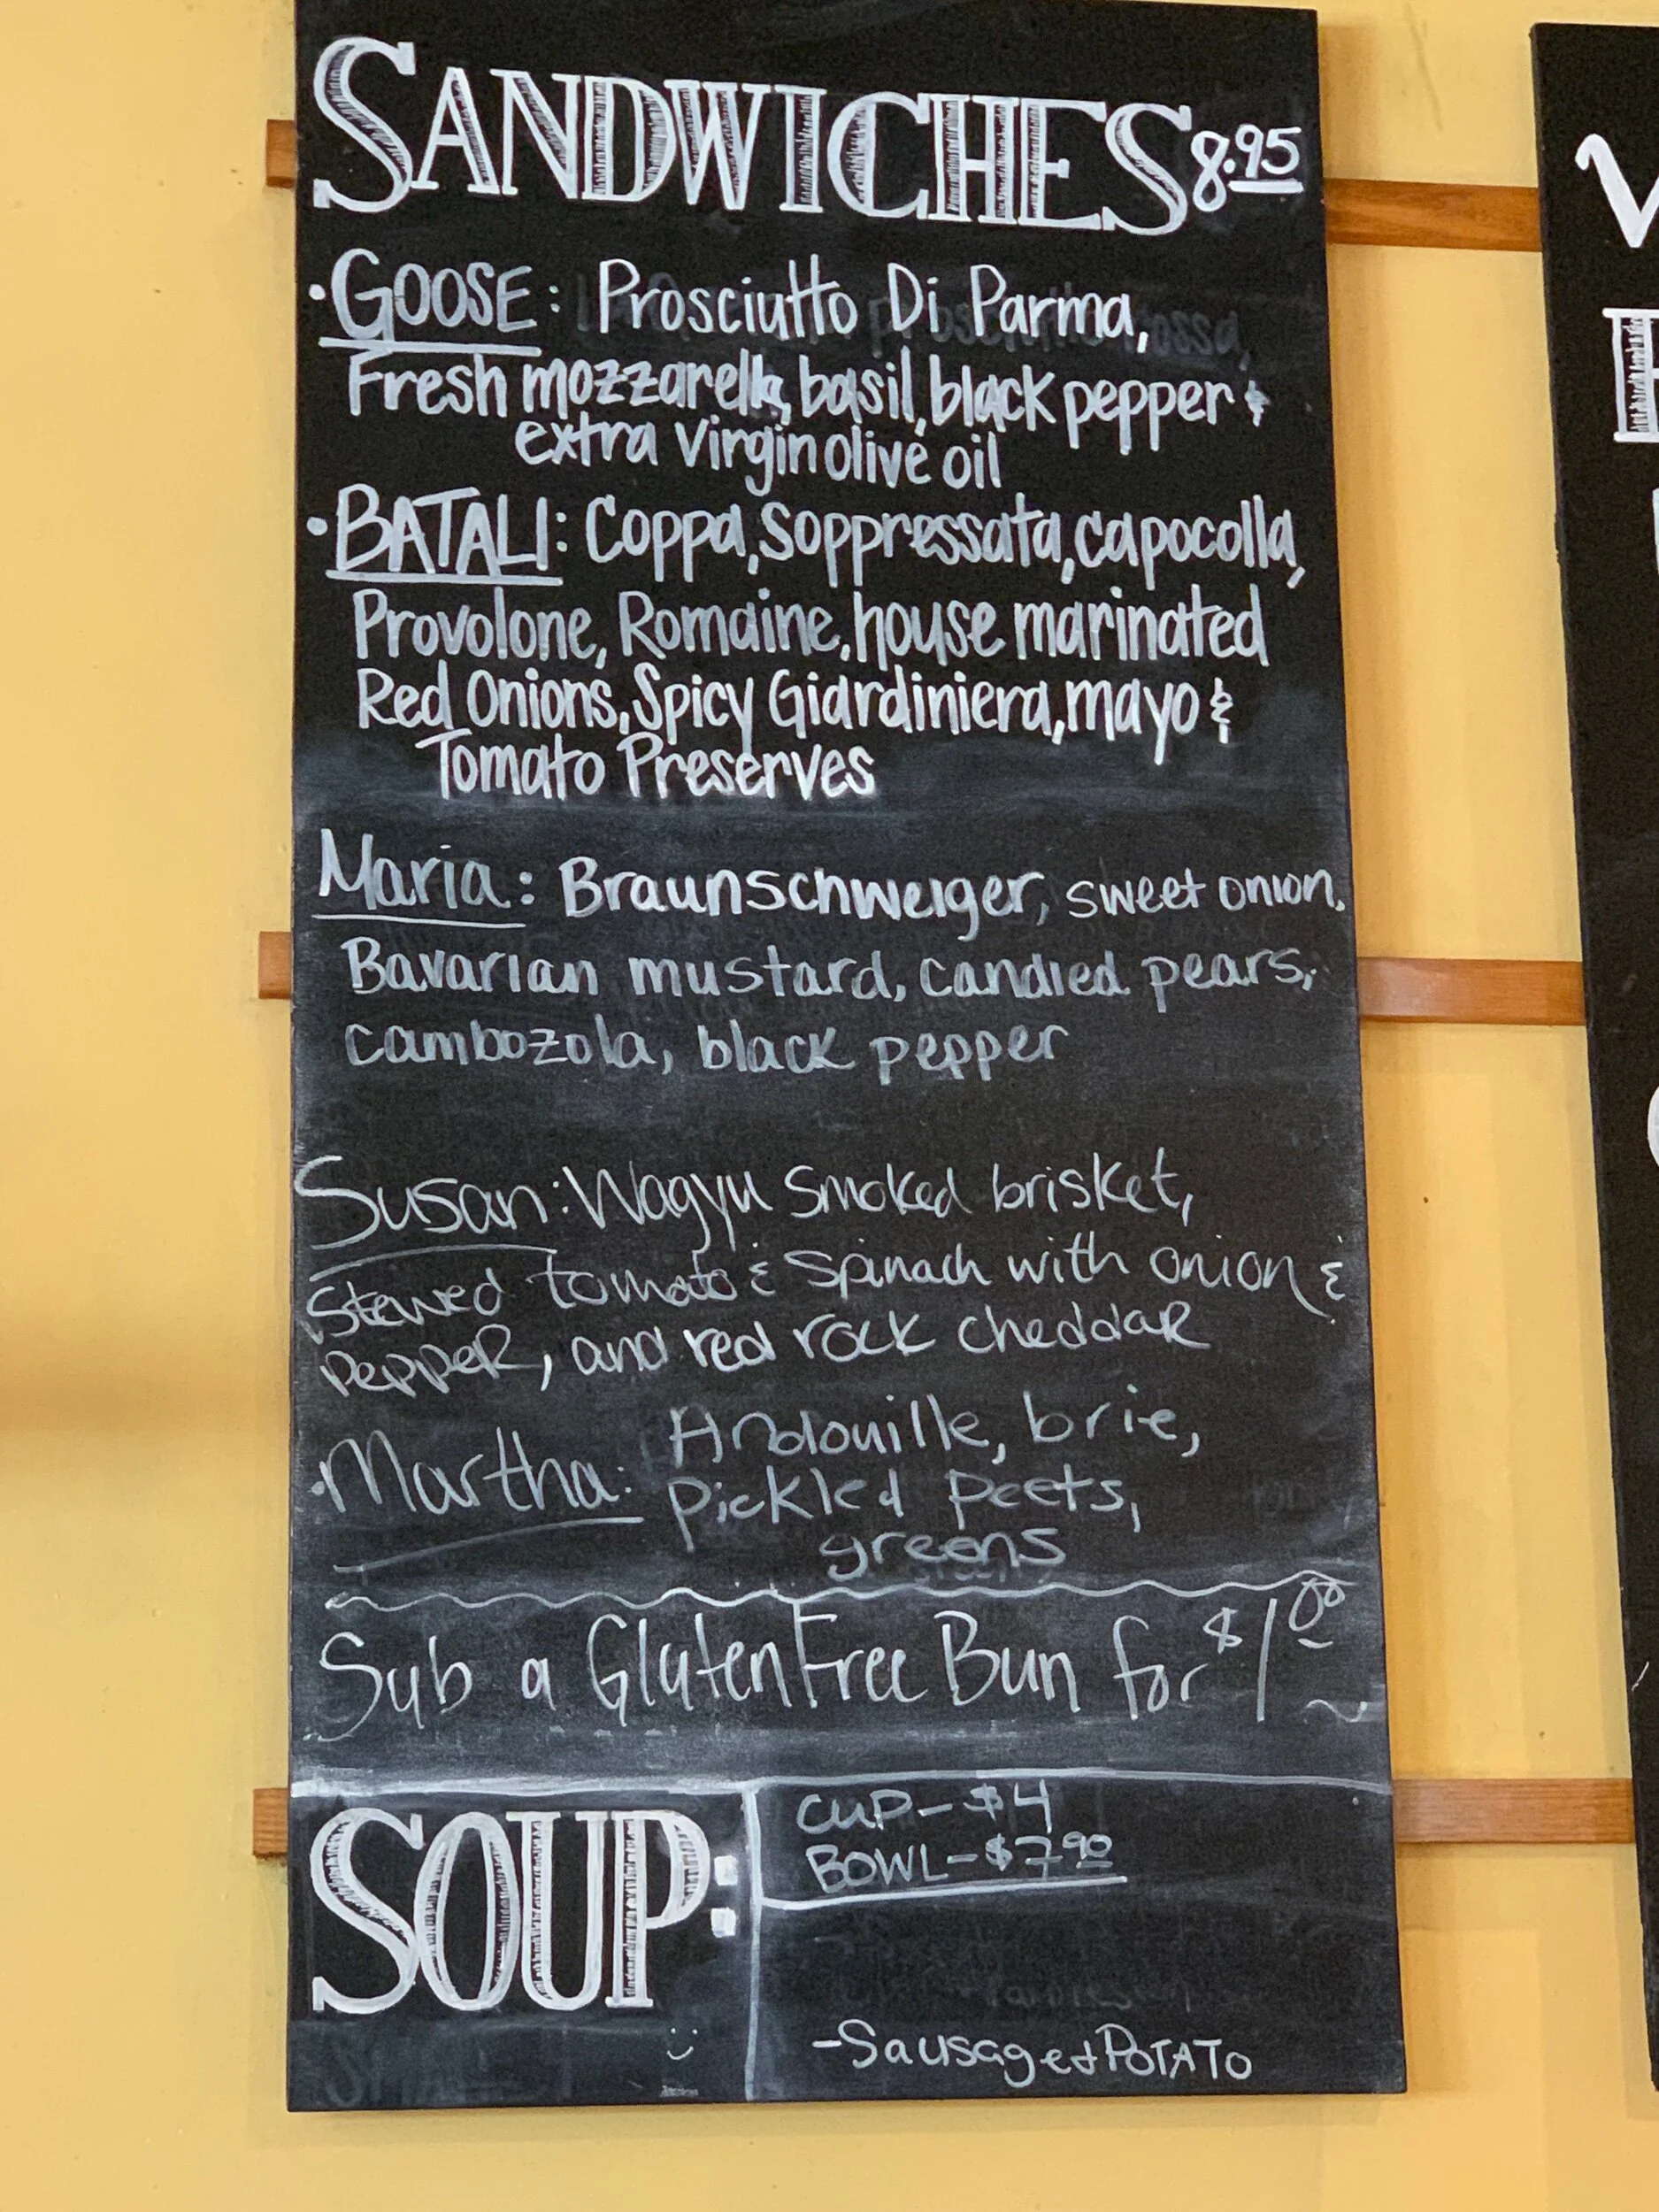 SANDWICHES 8.95
• GOOSE: Prosciutto Di Parma,
Fresh mozzarella, basil, black pepper &
extra virgin olive oil
• BATALI: Coppa, Soppressata, capocolla,
Provolone, Romaine, house marinated
Red Onions, Spicy Giardiniera, mayo &
Tomato Preserves
Maria: Braunschweiger, sweet onion,
Bavarian mustard, candied pears,
cambozola, black pepper
Susan: Wagyu smoked brisket,
stewed tomato & spinach with onion &
pepper, and red rock cheddar
• Martha: Andouille, brie,
pickled beets,
greens
Sub a Gluten Free Bun for $1.00
SOUP:
CUP - $4
BOWL - $7.90
- Sausage & POTATO